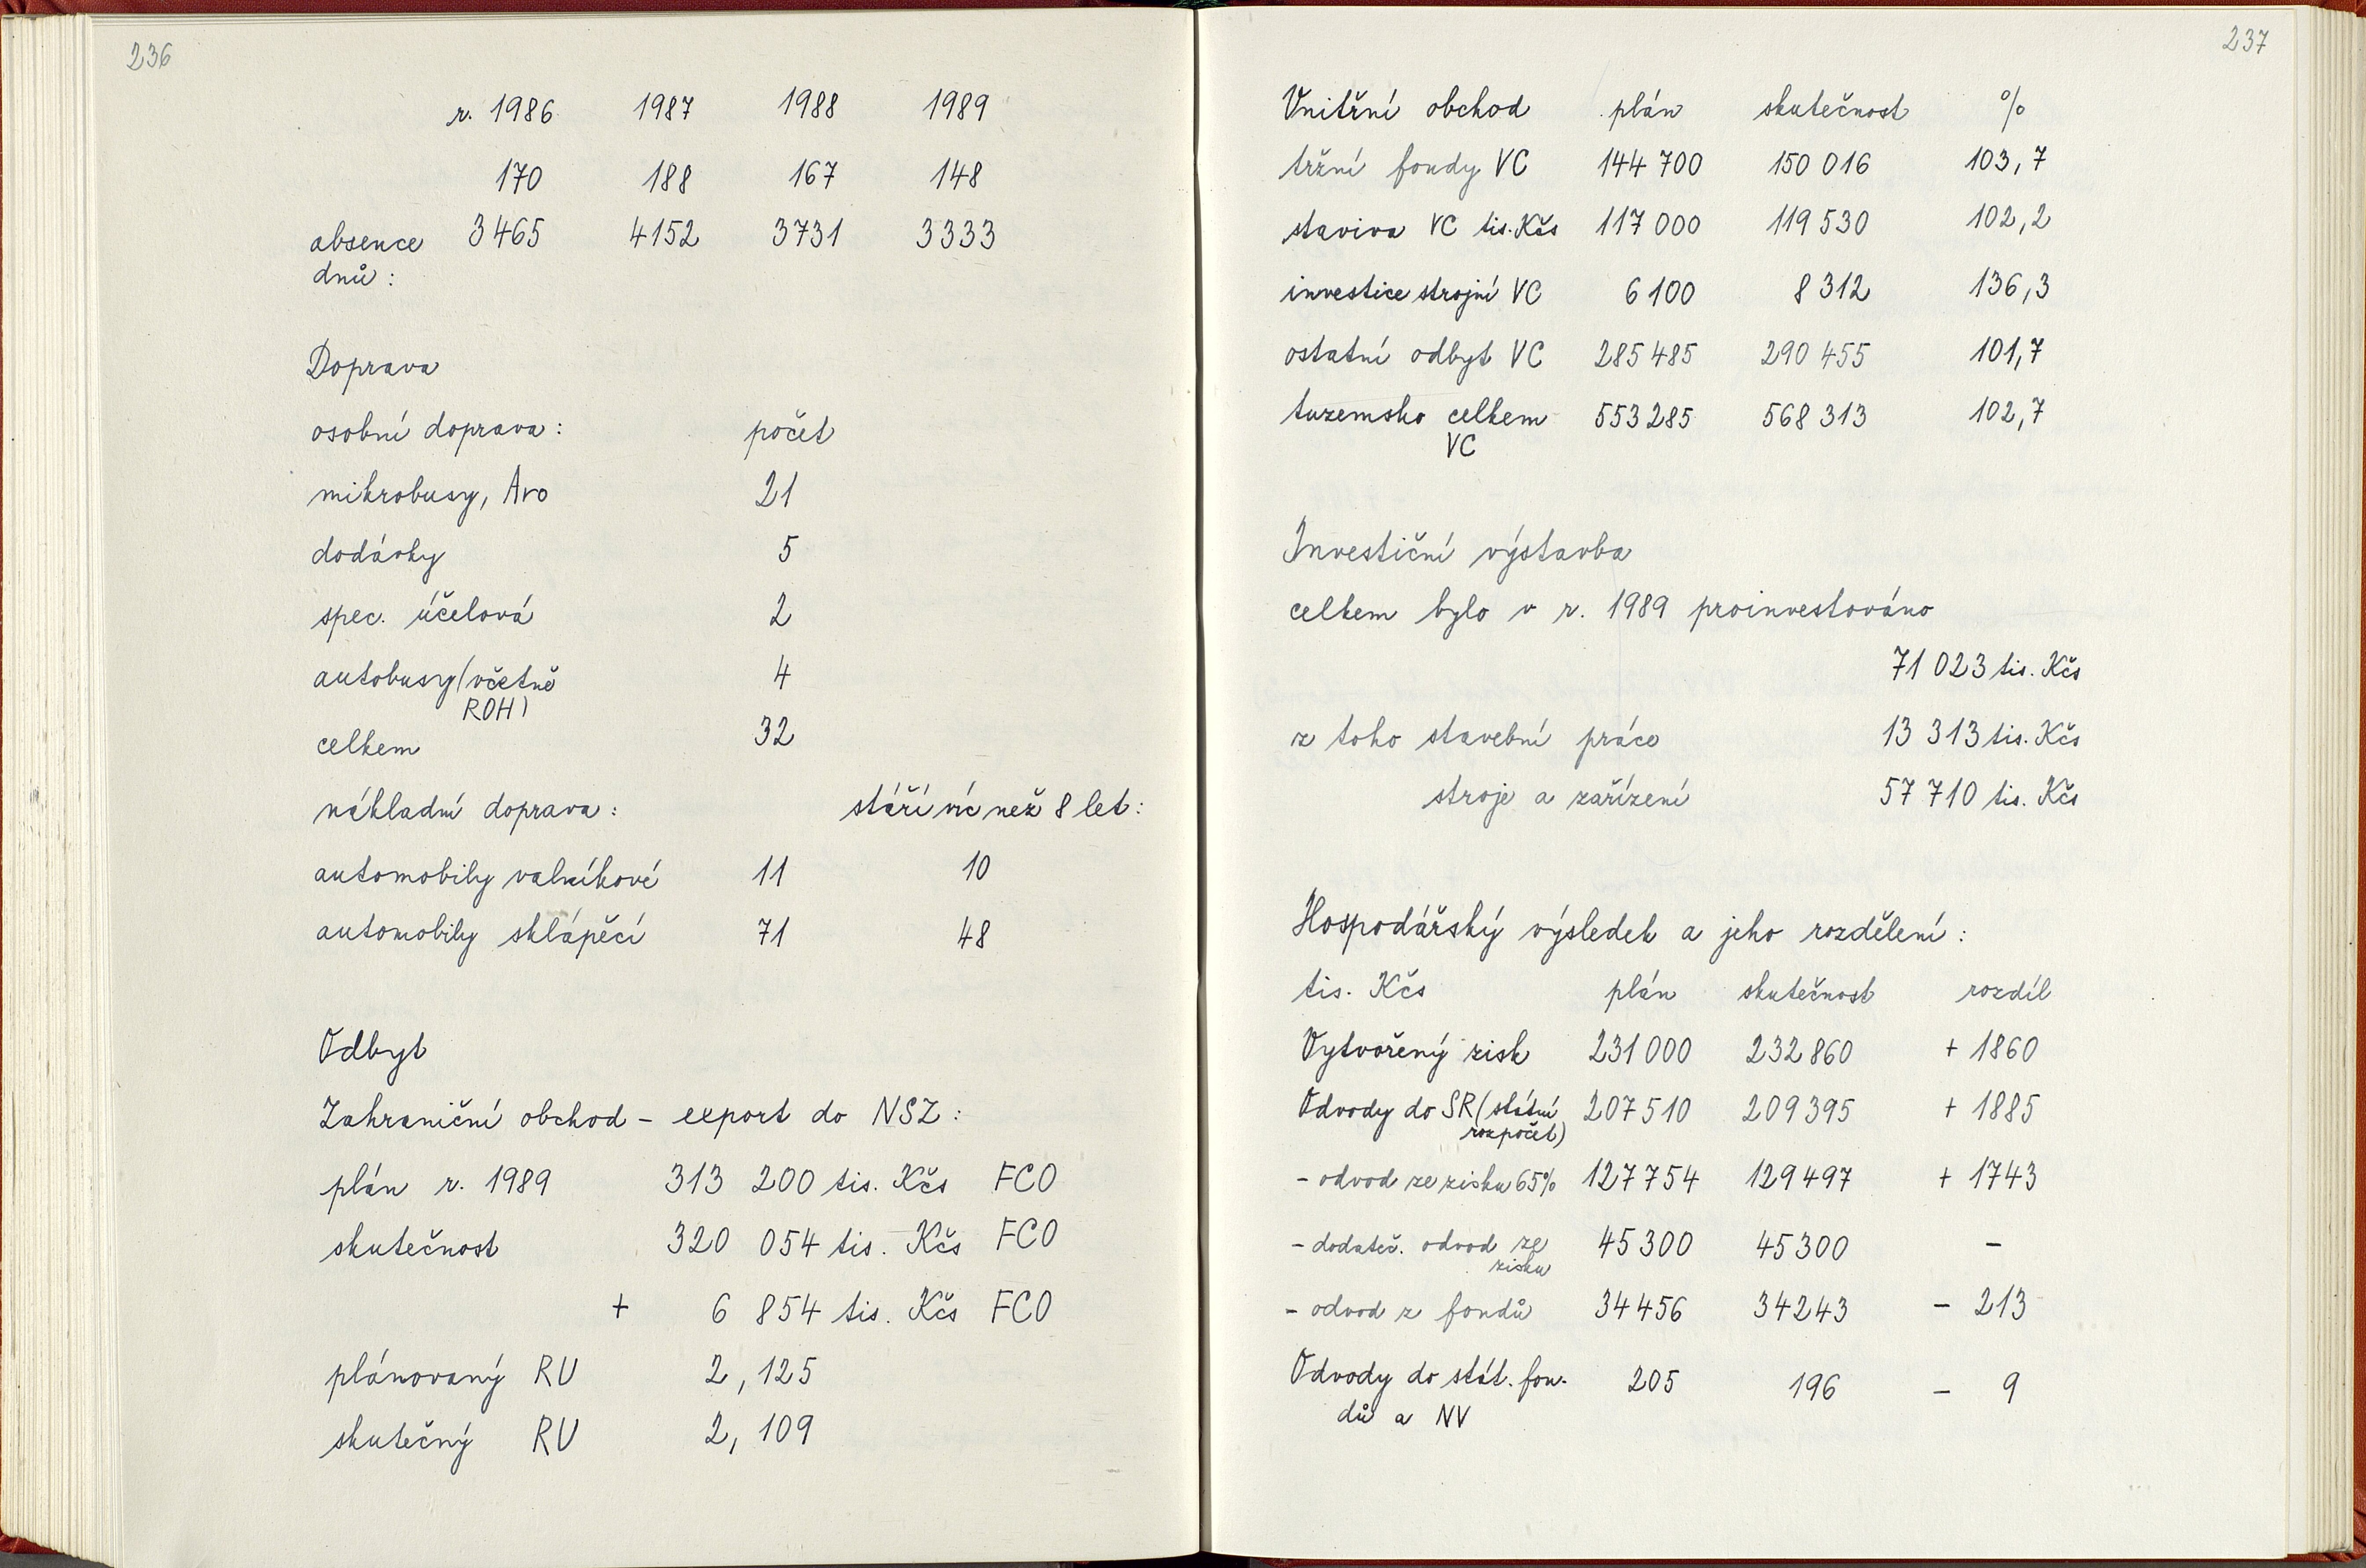 236
r. 1986 1987 1988 1989
170 188 167 148
absence 3465 4152 3731 3333
dnů:
Doprava
osobní doprava: počet
mikrobusy, Avo 21
dodávky 5
spec. účelová 2
autobusy (včetně 4
ROH)
celkem 32
nákladní doprava: stáří víc než 8 let:
automobily valníkové 11 10
automobily sklápěcí 71 48
Odbyt
Zahraniční obchod - export do NSZ:
plán r. 1989 313 200 tis. Kčs FCO
skutečnost 320 054 tis. Kčs FCO
+ 6 854 tis. Kčs FCO
plánovaný RU 2,125
skutečný RU 2,109
237
Vnitřní obchod plán skutečnost %
tržní fondy VC 144 700 150 016 103,7
staviva VC tis. Kčs 117 000 119 530 102,2
investice strojní VC 6 100 8 312 136,3
ostatní odbyt VC 285 485 290 455 101,7
tuzemsko celkem 553 285 568 313 102,7
VC
Investiční výstavba
celkem bylo v r. 1989 proinvestováno
71 023 tis. Kčs
z toho stavební práce 13 313 tis. Kčs
stroje a zařízení 57 710 tis. Kčs
Hospodářský výsledek a jeho rozdělení:
tis. Kčs plán skutečnost rozdíl
Vytvořený zisk 231 000 232 860 + 1860
Odvody do SR (státní 207 510 209 395 + 1885
rozpočet)
- odvod ze zisku 65% 127 754 129 497 + 1743
- dodateč. odvod ze 45 300 45 300 -
zisku
- odvod z fondů 34 456 34 243 - 213
Odvody do stát. fon- 205 196 - 9
dů a NV